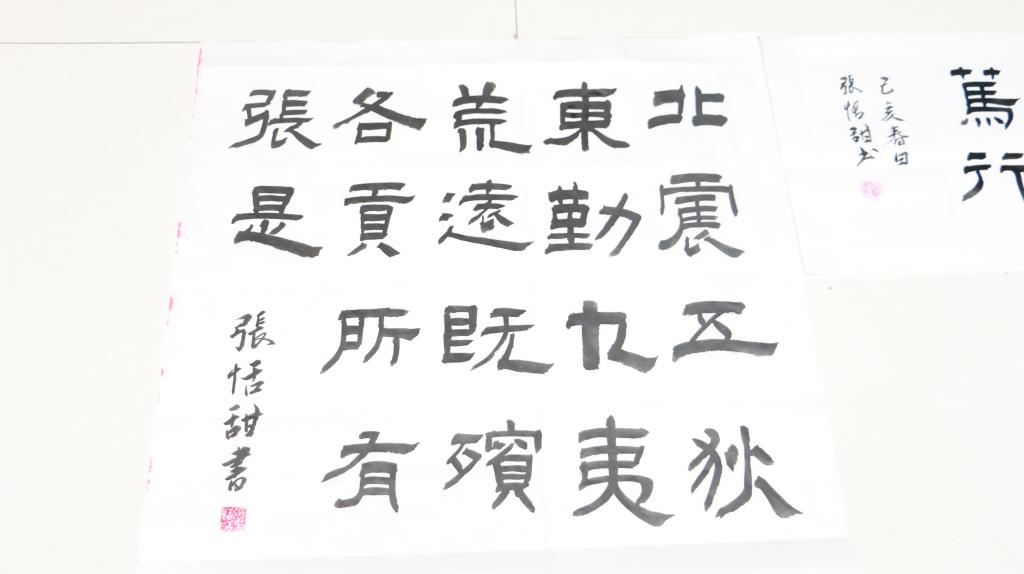 北震五狄
東勤九夷
荒遠既殯
各貢所有
張是
張恬甜書
篤行
己亥春日
張恬甜书